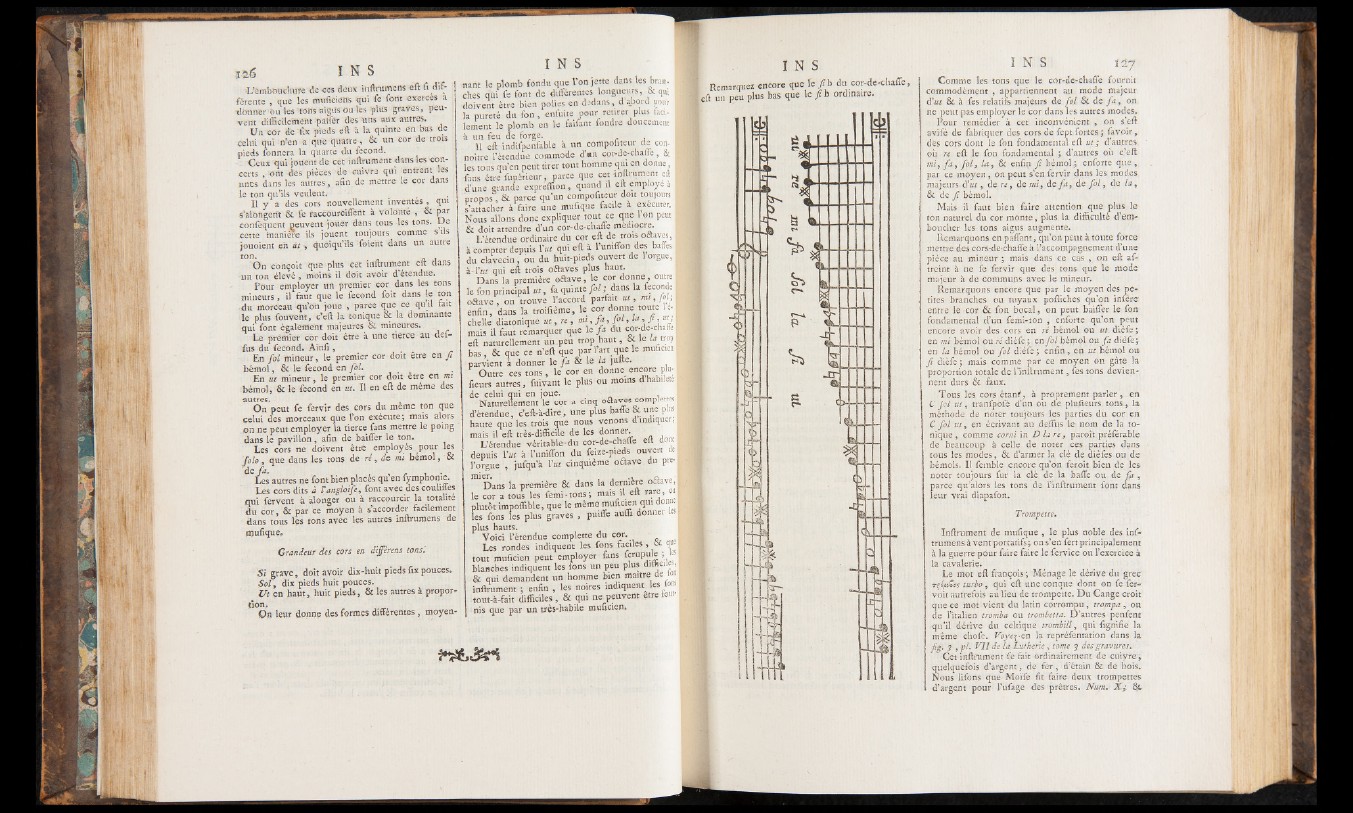 126 INS
L'embouchure de ces deux inſtrumens eſt ſi dif-
férente, que les muſiciens qui ſe ſont exercés à
donner ou les tons aigus ou les plus graves, peu-
vent difficilement paſſer des uns aux autres.
Un cor de ſix pieds eſt à la quinte en bas de
celui qui n'en a que quatre, & un cor de trois
pieds ſonnera la quarte du ſecond.
Ceux qui jouent de cet inſtrument dans les con-
certs, ont des pièces de cuivre qui entrent les
unes dans les autres, afin de mettre le cor dans
le ton qu'ils veulent.
Il y a des cors nouvellement inventés, qui
s'alongent & ſe raccourciſſent à volonté, & par
conſéquent peuvent jouer dans tous les tons. De
cette manière ils jouent toujours comme s'ils
jouoient en ut, quoiqu'ils ſoient dans un autre
ton.
On conçoit que plus cet inſtrument eſt dans
un ton élevé, moins il doit avoir d'étendue.
Pour employer un premier cor dans les tons
mineurs, il faut que le ſecond ſoit dans le ton
du morceau qu'on joue, parce que ce qu'il fait
le plus ſouvent, c'eſt la tonique & la dominante
qui ſont également majeures & mineures.
Le premier cor doit être à une tierce au-deſ-
ſus du ſecond. Ainſi,
En ſol mineur, le premier cor doit être en ſi
bémol, & le ſecond en ſol.
En ut mineur, le premier cor doit être en mi
bémol, & le ſecond en ut. Il en eſt de même des
autres.
On peut ſe ſervir des cors du même ton que
celui des morceaux que l'on exécute; mais alors
on ne peut employer la tierce ſans mettre le poing
dans le pavillon, afin de baiſſer le ton.
Les cors ne doivent être employés pour les
ſolo, que dans les tons de ré, de mi bémol, &
de fa.
Les autres ne ſont bien placés qu'en ſymphonie.
Les cors dits à l'angloiſe, ſont avec des couliſſes
qui ſervent à alonger ou à raccourcir la totalité
du cor, & par ce moyen à s'accorder facilement
dans tous les tons avec les autres inſtrumens de
muſique.
Grandeur des cors en différens tons.
Si grave, doit avoir dix-huit pieds ſix pouces.
Sol, dix pieds huit pouces.
Ut en haut, huit pieds, & les autres à propor-
tion.
On leur donne des formes différentes, moyen-
INS
nant le plomb fondu que l'on jette dans les bran-
ches qui ſe font de différentes longueurs, & qui
doivent être bien polies en dedans, d'abord pour
la pureté du ſon, enſuite pour retirer plus faci-
lement le plomb en le faiſant fondre doucement
à un feu de forge.
Il eſt indiſpenſable à un compoſiteur de con-
noître l'étendue commode d'un cor-de-chaſſe, &
les tons qu'en peut tirer tout homme qui en donne,
ſans être ſupérieur, parce que cet inſtrument eſt
d'une grande expreſſion, quand il eſt employé à
propos, & parce qu'un compoſiteur doit toujours
s'attacher à faire une muſique facile à exécuter.
Nous allons donc expliquer tout ce que l'on peut
& doit attendre d'un cor-de-chaſſe médiocre.
L'étendue ordinaire du cor eſt de trois octaves,
à compter depuis l'ut qui eſt à l'uniſſon des baſſes
du clavecin, ou du huit-pieds ouvert de l'orgue,
à l'ut qui eſt trois octaves plus haut.
Dans la première octave, le cor donne, outre
le ſon principal ut, ſa quinte ſol; dans la ſeconde
octave, on trouve l'accord parfait ut, mi, ſol;
enfin, dans la troiſième, le cor donne toute l'é-
chelle diatonique ut, re, mi, fa, ſol, la, ſi, ut;
mais il faut remarquer que le fa du cor-de-chaſſe
eſt naturellement un peu trop haut, & le la trop
bas, & que ce n'eſt que par l'art que le muſicien
parvient à donner le fa & le la juſte.
Outre ces tons, le cor en donne encore plu-
ſieurs autres, ſuivant le plus ou moins d'habileté
de celui qui en joue.
Naturellement le cor a cinq octaves complettes
d'étendue, c'eſt-à-dire, une plus baſſe & une plus
haute que les trois que nous venons d'indiquer;
mais il eſt très-difficile de les donner.
L'étendue véritable du cor-de-chaſſe eſt donc
depuis l'ut à l'uniſſon du ſeize-pieds ouvert de
l'orgue, juſqu'à l'ut cinquième octave du pre-
mier.
Dans la première & dans la dernière octave,
le cor a tous les ſemi-tons; mais il eſt rare, ou
plutôt impoſſible, que le même muſicien qui donne
les ſons les plus graves, puiſſe auſſi donner les
plus hauts.
Voici l'étendue complette du cor.
Les rondes indiquent les ſons faciles, & que
tout muſicien peut employer ſans ſcrupule; les
blanches indiquent les ſons un peu plus difficiles,
& qui demandent un homme bien maître de ſon
inſtrument; enfin, les noires indiquent les ſons
tout-à-fait difficiles, & qui ne peuvent être four-
nis que par un très-habile muſicien.
INS
Remarquez encore que le ſi b du cor-de-chaſſe,
eſt un peu plus bas que le ſi b ordinaire.
ut re mi fa ſol la ſi ut
INS 127
Comme les tons que le cor-de-chaſſe fournit
commodément, appartiennent au mode majeur
d'ut & à ſes relatifs majeurs de ſol & de fa, on
ne peut pas employer le cor dans les autres modes.
Pour remédier à cet inconvénient, on s'eſt
aviſé de fabriquer des cors de ſept ſortes; ſavoir,
des cors dont le ſon fondamental eſt ut; d'autres
où re eſt le ſon fondamental; d'autres où c'eſt
mi, fa, ſol, la, & enfin ſi bémol; enſorte que,
par ce moyen, on peut s'en ſervir dans les modes
majeurs d'ut, de re, de mi, de fa, de ſol, de la,
& de ſi bémol.
Mais il faut bien faire attention que plus le
ton naturel du cor monte, plus la difficulté d'em-
boucher les tons aigus augmente.
Remarquons en paſſant, qu'on peut à toute force
mettre des cors-de-chaſſe à l'accompagnement d'une
pièce au mineur; mais dans ce cas, on eſt aſ-
treint à ne ſe ſervir que des tons que le mode
majeur a de communs avec le mineur.
Remarquons encore que par le moyen des pe-
tites branches ou tuyaux poſtiches qu'on inſère
entre le cor & ſon bocal, on peut baiſſer le ſon
fondamental d'un ſemi-ton, enſorte qu'on peut
encore avoir des cors en ré bémol ou ut dièſe;
en mi bémol ou ré dièſe; en ſol bémol ou fa dièſe;
en la bémol ou ſol dièſe; enfin, en ut bémol ou
ſi dièſe; mais comme par ce moyen on gâte la
proportion totale de l'inſtrument, ſes tons devien-
nent durs & faux.
Tous les cors étant, à proprement parler, en
C ſol ut, tranſpoſé d'un ou de pluſieurs tons, la
méthode de noter toujours les parties du cor en
C ſol ut, en écrivant au deſſus le nom de la to-
nique, comme corni in D la re, paroît préférable
de beaucoup à celle de noter ces parties dans
tous les modes, & d'armer la clé de dièſes ou de
bémols. Il ſemble encore qu'on feroit bien de les
noter toujours ſur la clé de la baſſe ou de fa,
parce qu'alors les tons de l'inſtrument ſont dans
leur vrai diapaſon.
Trompette.
Inſtrument de muſique, le plus noble des inſ-
trumens à vent portatifs; on s'en ſert principalement
à la guerre pour faire faire le ſervice ou l'exercice à
la cavalerie.
Le mot eſt françois; Ménage le dérive du grec
turbo, qui eſt une conque dont on ſe ſer-
voit autrefois au lieu de trompette. Du Cange croit
que ce mot vient du latin corrompu, trompa, ou
de l'italien tromba ou trombetta. D'autres penſent
qu'il dérive du celtique trombill, qui ſignifie la
même choſe. Voyez-en la repréſentation dans la
fig. 7, pl. VII de la Lutherie, tome 3 des gravures.
Cet inſtrument ſe fait ordinairement de cuivre,
quelquefois d'argent, de fer, d'étain & de bois.
Nous liſons que Moïſe fit faire deux trompettes
d'argent pour l'uſage des prêtres. Num. X; &